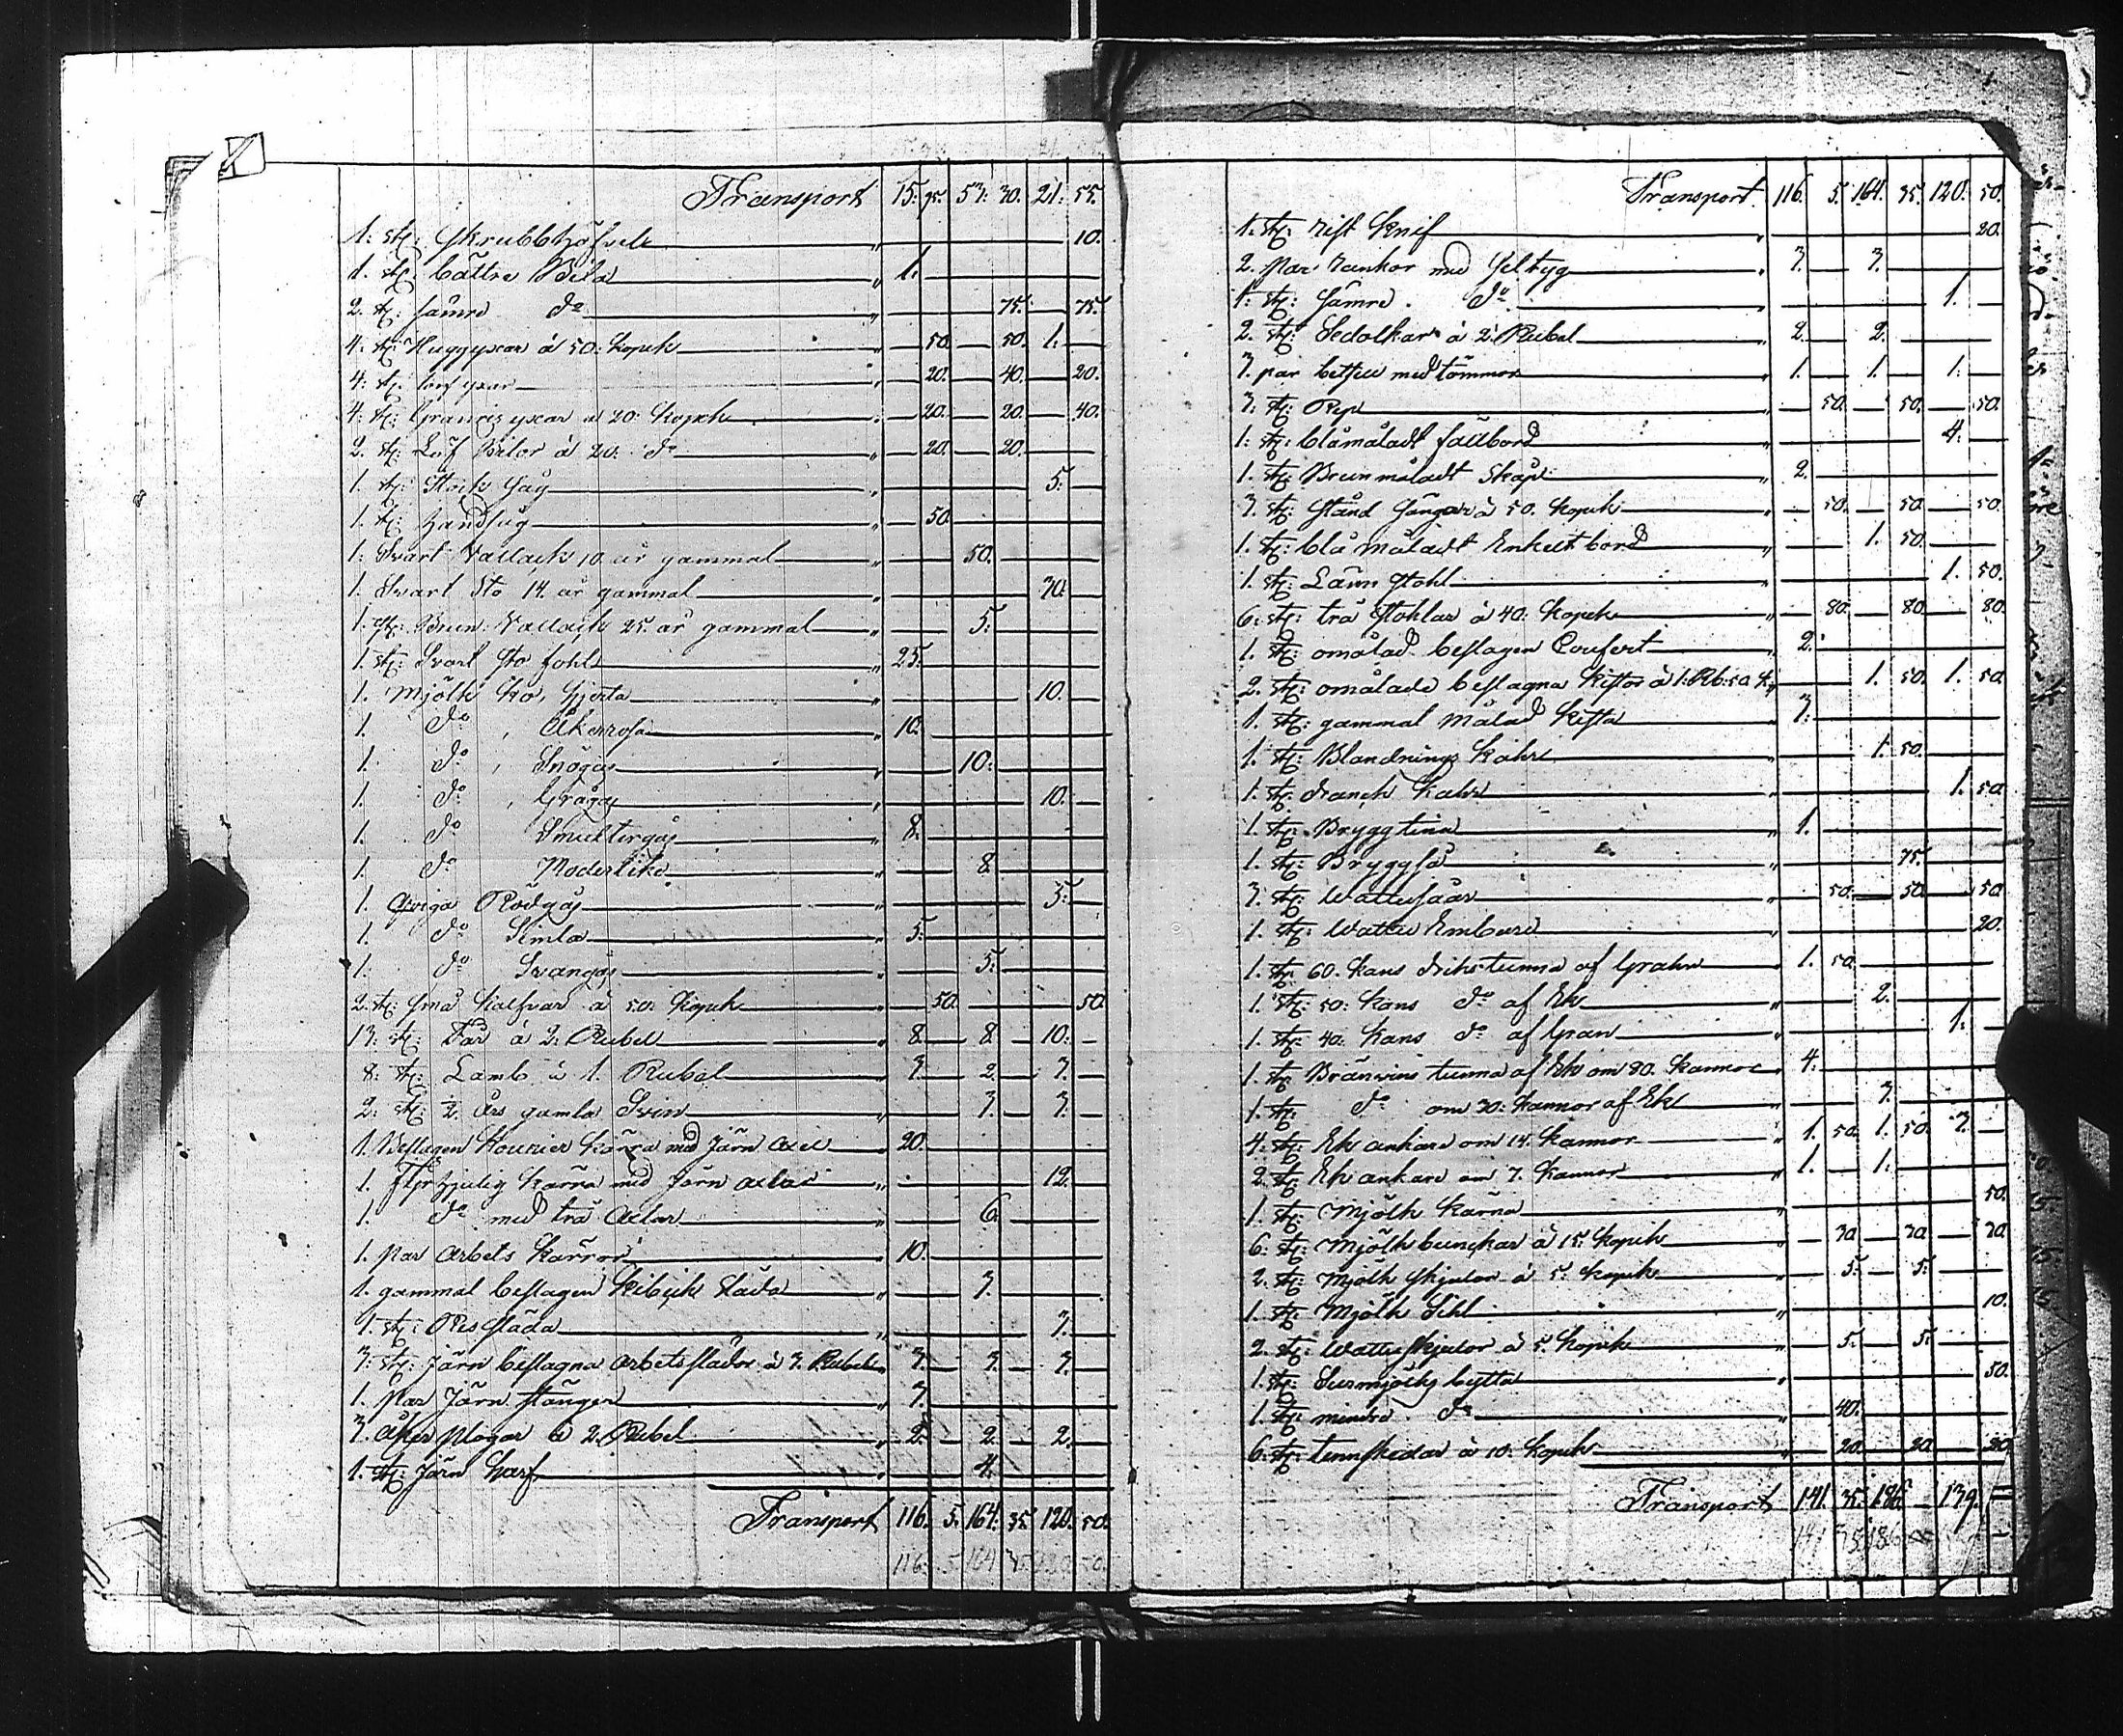 Transport 15. 95. 53. 30. 21. 55.
1. st: skrubbhöfvel " 10.
1. st: bättre Bila " 1.
2. st: sämre do " 75. 75.
4. st: Huggyxar à 50: Kopek " 50. 50. 1.
4. st: yxar " 20. 40. 20.
4. st: yxar à 20: Kopek " 20. 20. 40.
2. st: Löf Bilor à 20: do " 20. 20.
1. st: Stock såg " 5.
1. st: handsåg " 50.
1. Svart Vallack 10. år gammal " 50.
1. Svart Sto 14. år gammal " 30.
1. st: Brun Vallack 25. år gammal " 5.
1. st: Svart sto fohl " 25.
1. Mjölk ko, hjerta " 10.
1. do , Åkerrosa " 10.
1. do , Snögås " 10.
1. do , Grågås " 10.
1. do Smultergås " 8.
1. do Moderlika " 8.
1. Qviga Rödgås " 5.
1. do Simla " 5.
1. do Svangås " 5.
2. st: små kalfvar à 50: Kopek " 50. 50.
13. st: Får à 2. Rubel " 8. 8. 10.
8. st: Lamb à 1. Rubel " 3. 2. 3.
2. st: 2. Års gamla Svin " 3. 3.
1. Beslagen Kourier Kärra med Järn Axel " 20.
1. Fyrhjulig Kärra med Järn axlar " 12.
1. do med trä Axlar " 6.
1. par Arbets Kärror " 10.
1. gammal beslagen Kibick släda " 3.
1. st: Res släda " 3.
3. st: Järn beslagna Arbetsslädor à 3. Rubel 3. 3. 3.
1. par Järn stänger " 3.
3. Åker plogar à 2. Rubel " 2. 2. 2.
1. st: Järn harf " 4.
Transport 116. 5. 164. 35. 120. 50.
116. 5. 164 35. 120 50.
Transport 116. 5. 164. 35. 120. 50.
1. st: rist Knif " 20.
2. par rankor med seltyg " 3. 3.
1. st: sämre do " 1.
2. st: Sedolkar à 2. Rubel " 2. 2.
3. par betsel med tömmar " 1. 1. 1.
3. st: Rep " 50. 50. 50.
1. st: blåmåladt fällbord " 4.
1. st: Brunmåladt Skåp " 2.
3. st: Stånd Sängar à 50. Kopek " 50. 50. 50.
1. st: blå måladt Enkelt bord " 1. 50.
1. st: Länn stohl " 1. 50.
6. st: trä stohlar à 40. Kopek " 80. 80. 80.
1. st: omålad beslagen Coufert " 2.
2. st: omålade beslagna Kistor à 1. Rb: 50 K. " 1. 50. 1. 50.
1. st: gammal målad Kista " 3.
1. st: Blandnings Kahr " 1. 50.
1. st: dranck Kahr " 1. 50.
1. st: Bryggtina " 1.
1. st: Bryggså " 75.
3. st: Wattusåar " 50. 50. 50.
1. st: Wattu Embare " 20.
1. st: 60. Kans drikstunna af Grahn " 1. 50.
1. st: 50: Kans do af Ek " 2.
1. st: 40. Kans do af Gran " 1.
1. st: Bränvins tunna af Ek om 80. Kannor " 4.
1. st: do om 30: Kannor af Ek " 3.
4. st: Ek ankare om 14. Kannor " 1. 50. 1. 50. 3.
2. st: Ek ankare om 7. Kannor " 1. 1.
1. st: Mjölk Kärna " 50.
6. st: Mjölkbunckar à 15. Kopek " 30. 30. 30
2. st: Mjölk skjulor à 5. Kopek " 5. 5.
1. st: Mjölk Sihl " 10.
2. st: Wattuskjulor à 5. Kopek " 5. 5.
1. st: Surmjölks bytta " 50.
1. st: mindre do " 40.
6. st: tennskedar à 10. Kopek " 20. 20. 20
Transport 141. 35. 186. — 139. =
141 35 186